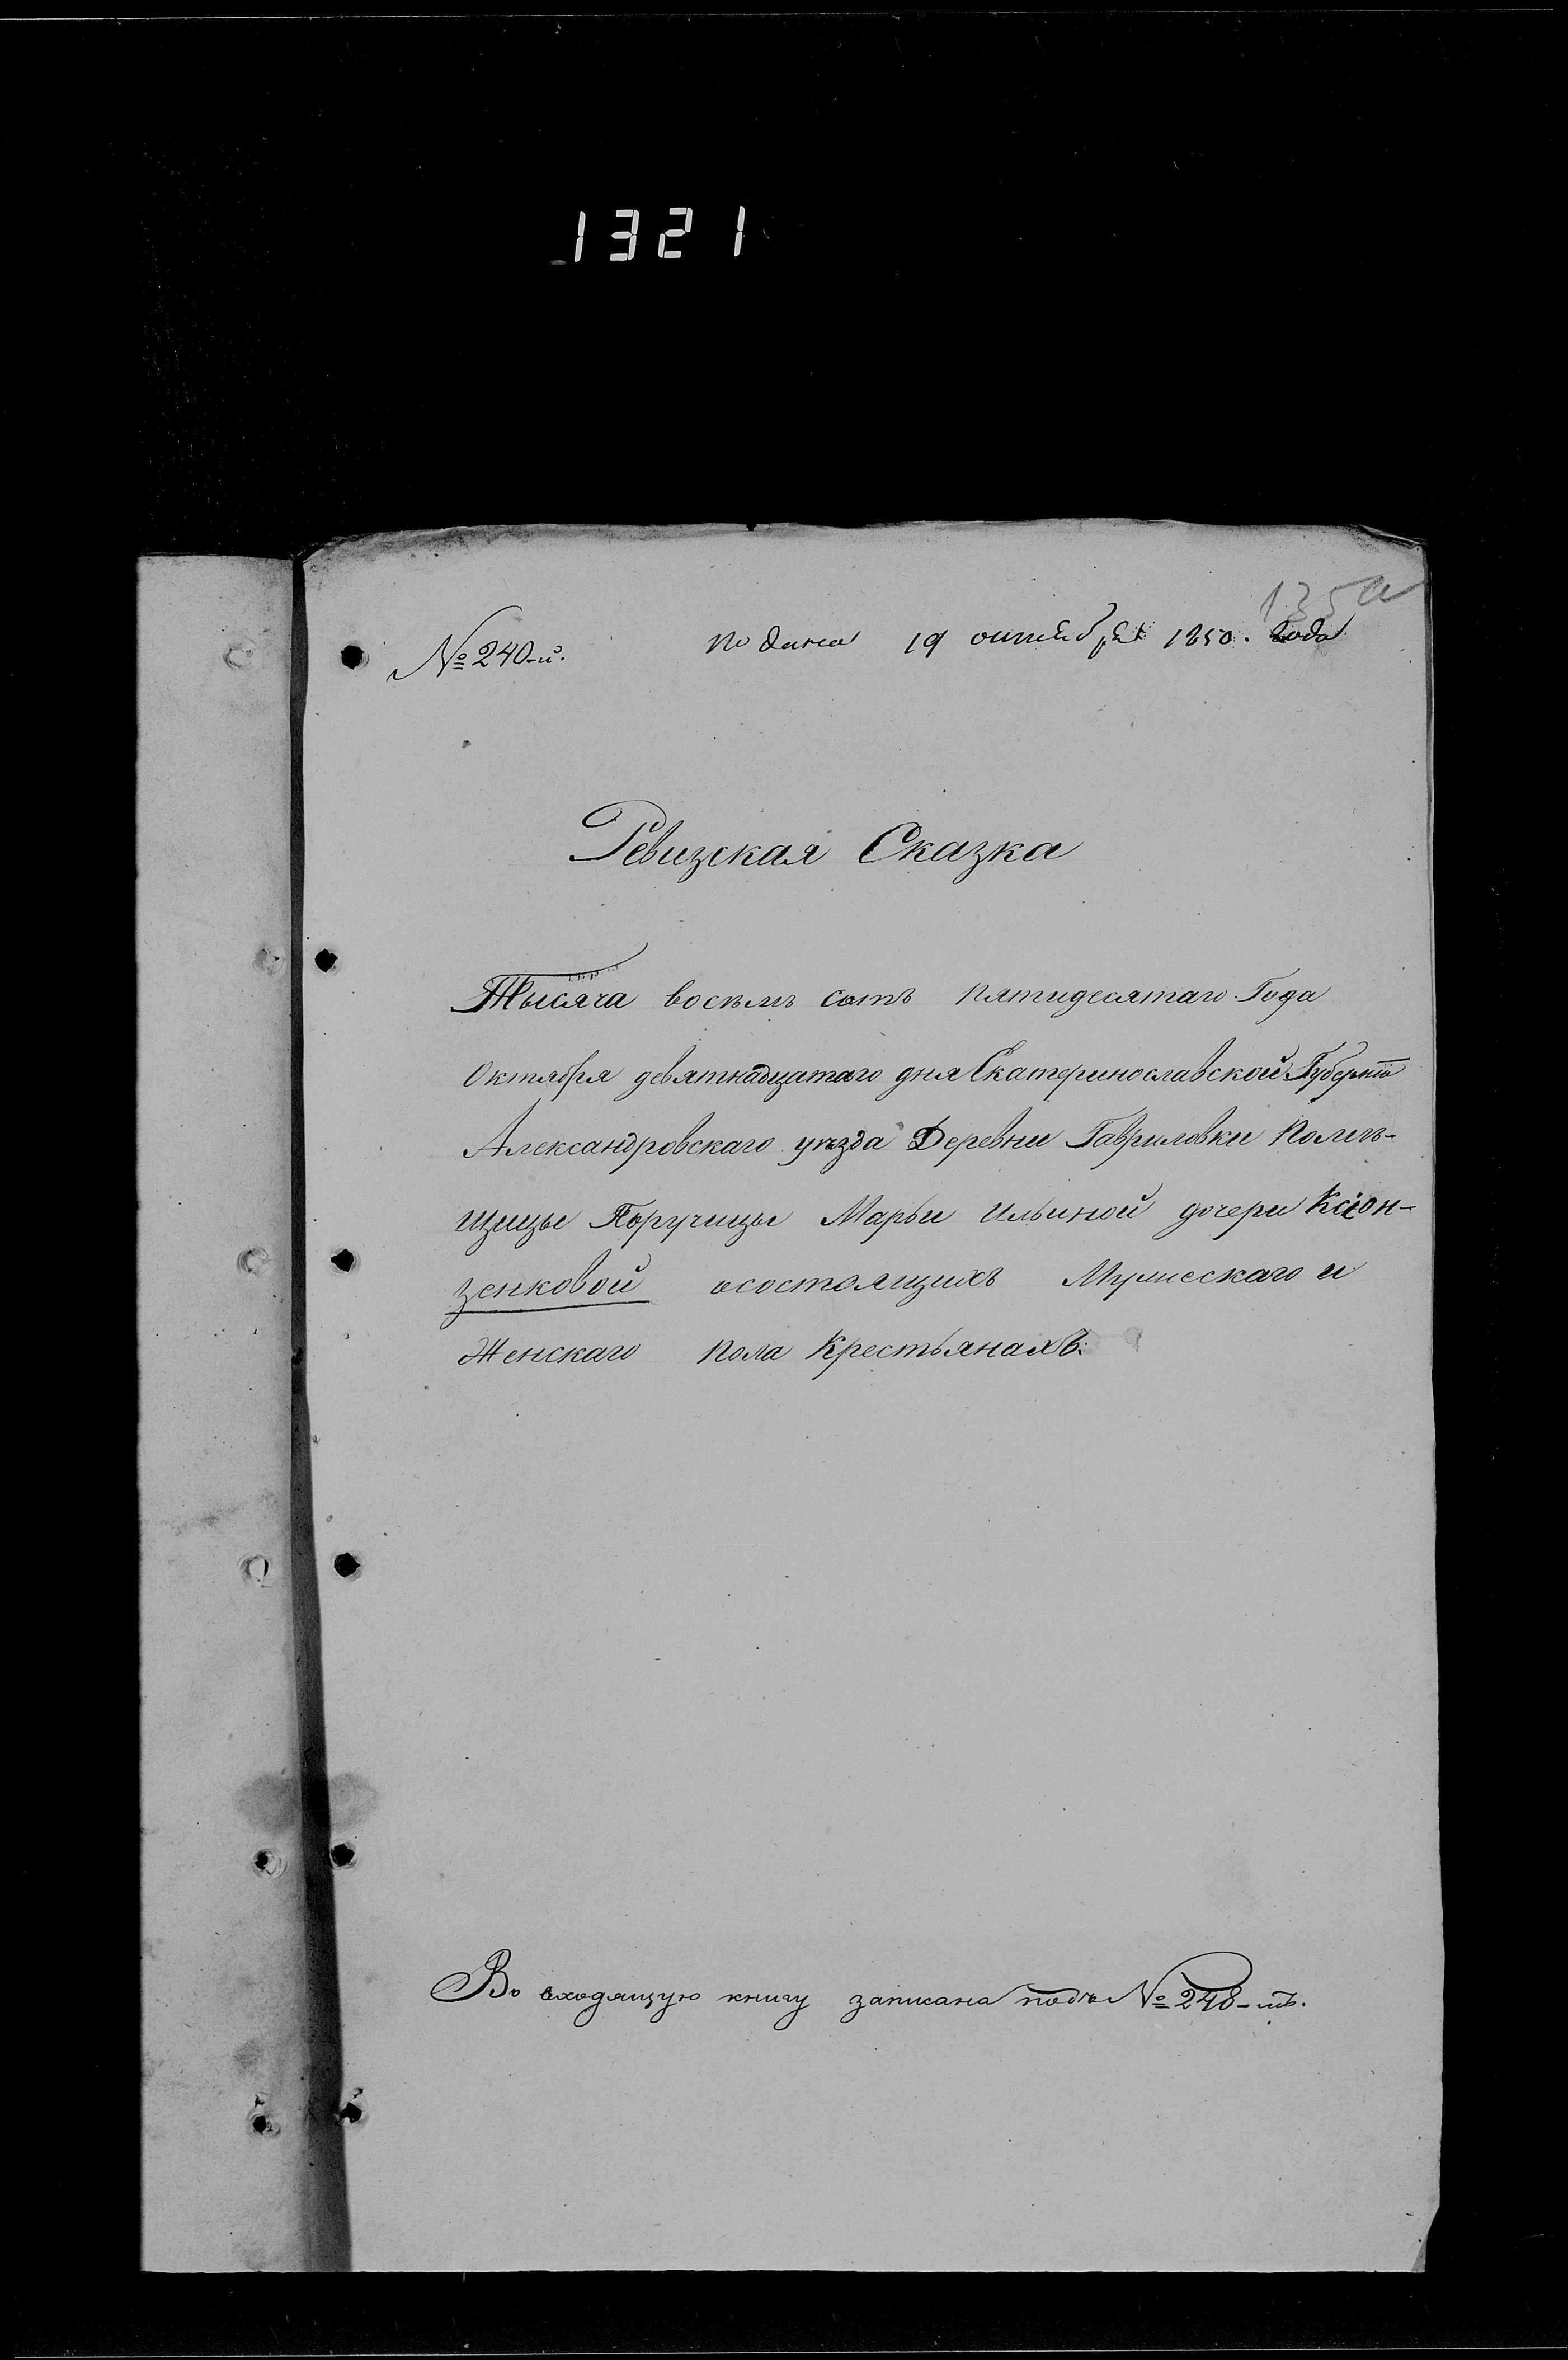 1321
135а
№ 240-й. подана 19 октября 1850. года
Ревизская Сказка
Тысяча восемь сотъ пятидесятаго Года
Октября девятнадцатаго дня Екатеринославской Губерніи
Александровскаго уѣзда Деревни Гавриловки Помѣ-
щицы Поручицы Марьи Ильиной дочери Ксіон-
зенковой осостоящихъ Мужескаго и
Женскаго пола Крестьянахъ.
Во входящую книгу записана подъ № 248-мъ.